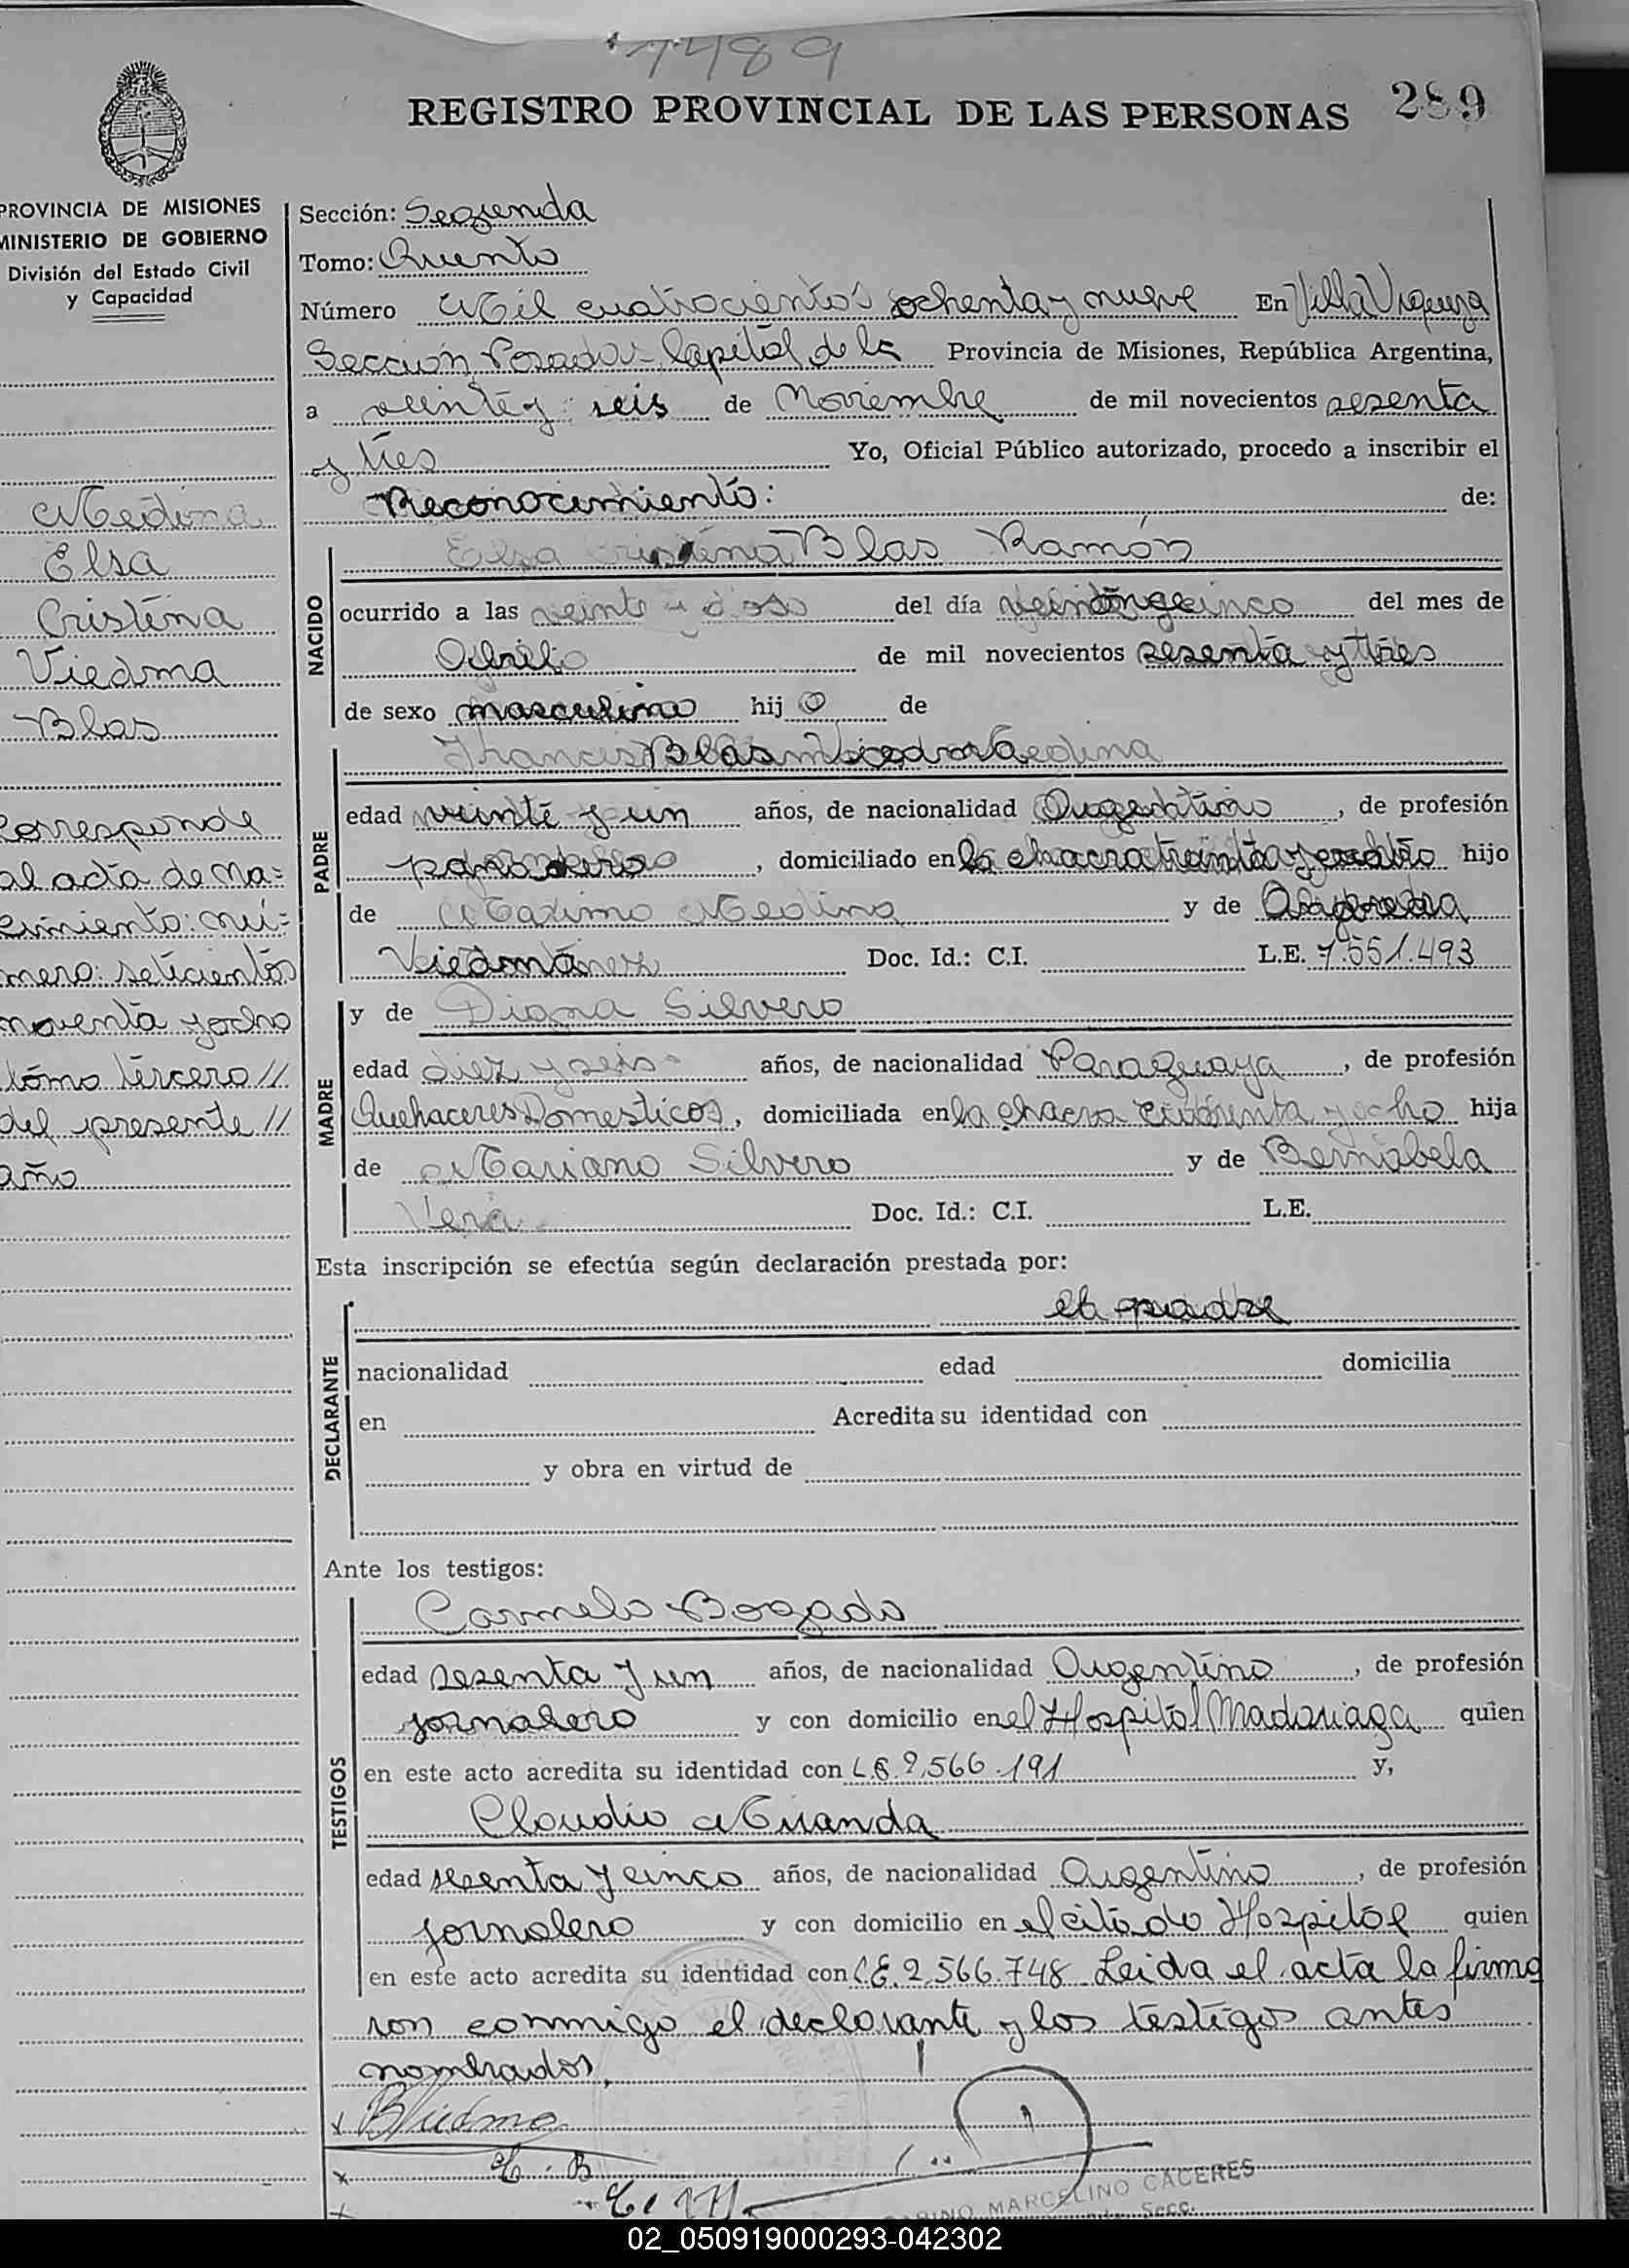 1489
REGISTRO PROVINCIAL DE LAS PERSONAS 289
PROVINCIA DE MISIONES
MINISTERIO DE GOBIERNO
División del Estado Civil
y Capacidad
Medina
Elsa
Cristina
Viedma
Blas
corresponde
al acta de na=
cimiento: nú=
mero: seticientos
noventa y ocho
tómo tércero //
del presente //
año
Sección: Segunda
Tomo: Quinto
Número Mil cuatrocientos ochenta y nueve En Villa Urquiza
Sección Posadas Capital de la Provincia de Misiones, República Argentina,
a veinte y seis de Noviembre de mil novecientos sesenta
y tres Yo, Oficial Público autorizado, procedo a inscribir el
Reconocimiento: de:
NACIDO
Elsa Cristina Blas Ramón
ocurrido a las veinte y dos del día veinte y cinco del mes de
Abril de mil novecientos sesenta y tres
de sexo masculino hij o de
PADRE
Blas Viedma
edad veinte y un años, de nacionalidad Argentino, de profesión
, domiciliado en la chacra treinta y hijo
de Maximo Medina y de
Viedma Doc. Id.: C.I. L.E. 7.551.493
MADRE
y de Diana Silvero
edad diez y seis años, de nacionalidad Paraguaya, de profesión
Quehaceres Domesticos, domiciliada en la chacra cuarenta y ocho hija
de Mariano Silvero y de Bernabela
Vera Doc. Id.: C.I. L.E.
Esta inscripción se efectúa según declaración prestada por:
DECLARANTE
el padre
nacionalidad edad domicilia
en Acredita su identidad con
y obra en virtud de
Ante los testigos:
TESTIGOS
Carmelo Bogado
edad sesenta y un años, de nacionalidad Argentino, de profesión
jornalero y con domicilio en el Hospital Madariaga quien
en este acto acredita su identidad con L.E. 2.566.191 y,
Claudio Miranda
edad sesenta y cinco años, de nacionalidad Argentino, de profesión
jornalero y con domicilio en el citado Hospital quien
en este acto acredita su identidad con L.E. 2.566.748 Leida el acta la firma
ron conmigo el declarante y los testigos antes
nombrados.
x BViedma
x C. B
x C. M
MARCELINO CACERES
Secc.
02_050919000293-042302